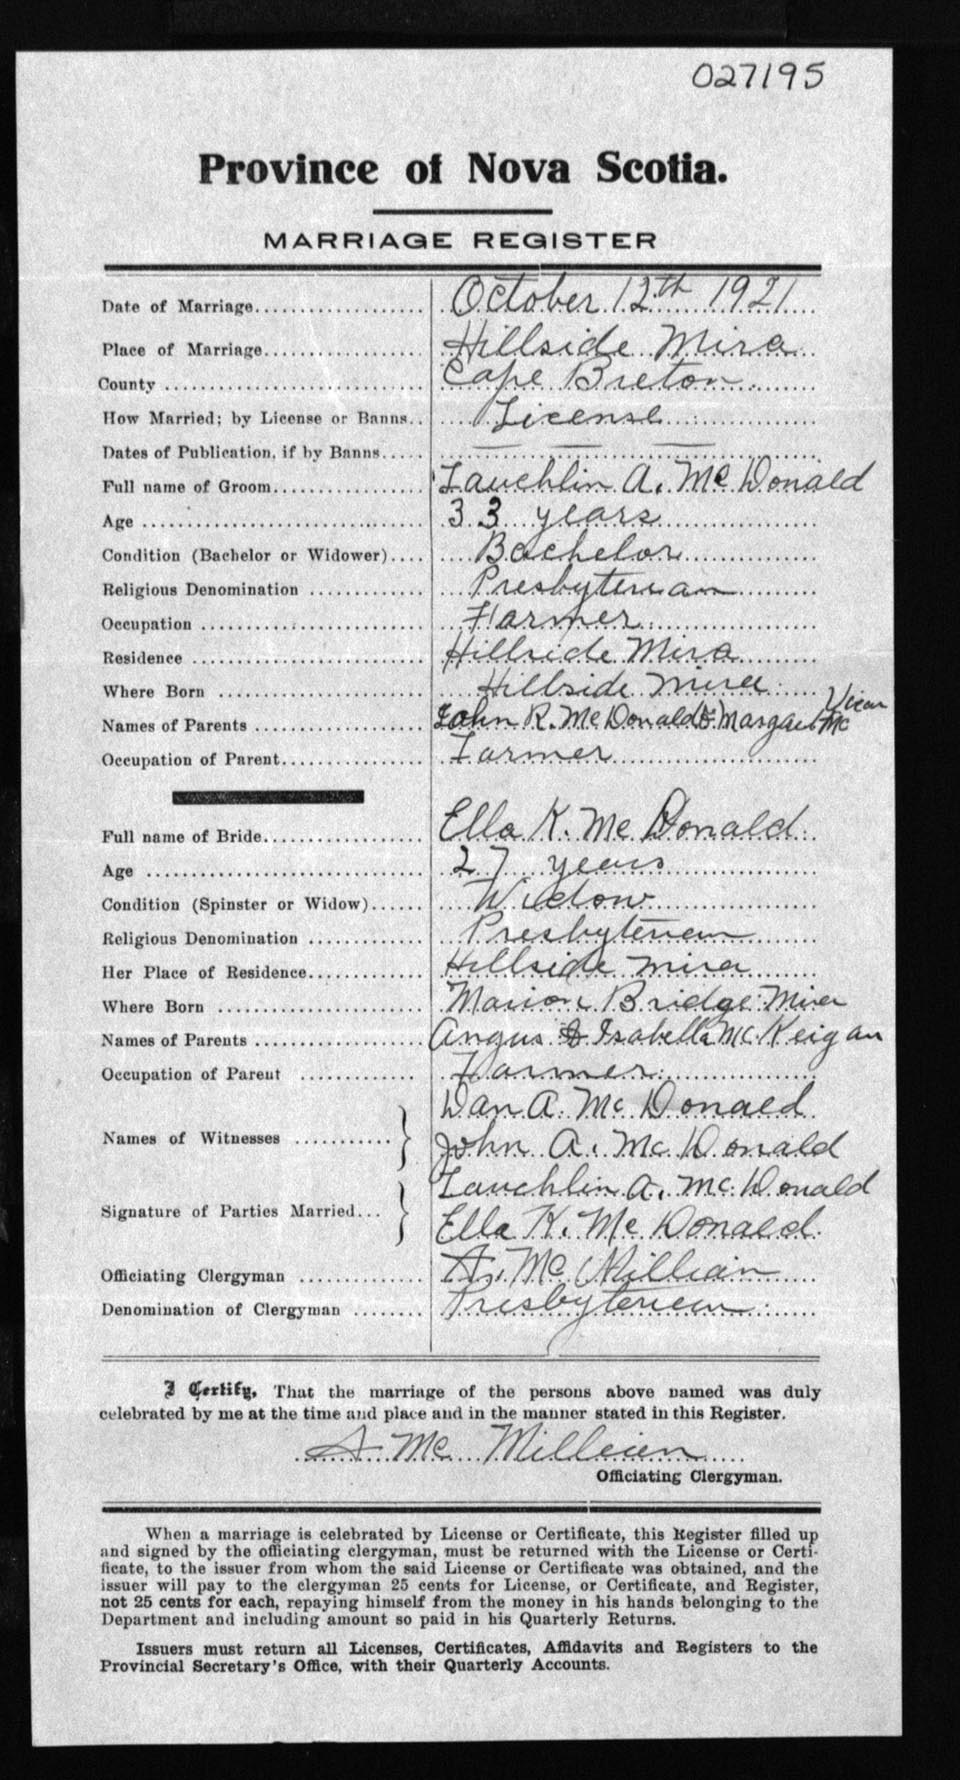 027195
Province of Nova Scotia.
MARRIAGE REGISTER
Date of Marriage................... October 12th 1921
Place of Marriage.................. Hillside Mira
County ............................ Cape Breton
How Married; by License or Banns.. License
Dates of Publication, if by Banns..... — — —
Full name of Groom................. Lauchlin A. McDonald
Age ............................... 33 years
Condition (Bachelor or Widower).... Bachelor
Religious Denomination ............. Presbyterian
Occupation ......................... Farmer
Residence .......................... Hillside Mira
Where Born ........................ Hillside Mira
Names of Parents ................... John R. McDonald & Margaret Mc Vicar
Occupation of Parent................ Farmer
Full name of Bride.................. Ella K. McDonald
Age ............................... 27 years
Condition (Spinster or Widow)...... Widow
Religious Denomination ............. Presbyterian
Her Place of Residence.............. Hillside Mira
Where Born ........................ Marion Bridge Mira
Names of Parents ................... Angus & Isabella McKeigan
Occupation of Parent ............. Farmer
Names of Witnesses ........... } Dan A. McDonald
John A. McDonald
Signature of Parties Married... } Lauchlin A. McDonald
Ella K. McDonald
Officiating Clergyman .............. A. McMillian
Denomination of Clergyman ........ Presbyterian
I Certify, That the marriage of the persons above named was duly
celebrated by me at the time and place and in the manner stated in this Register.
A. McMilleian
Officiating Clergyman.
When a marriage is celebrated by License or Certificate, this Register filled up
and signed by the officiating clergyman, must be returned with the License or Certi-
ficate, to the issuer from whom the said License or Certificate was obtained, and the
issuer will pay to the clergyman 25 cents for License, or Certificate, and Register,
not 25 cents for each, repaying himself from the money in his hands belonging to the
Department and including amount so paid in his Quarterly Returns.
Issuers must return all Licenses, Certificates, Affidavits and Registers to the
Provincial Secretary's Office, with their Quarterly Accounts.